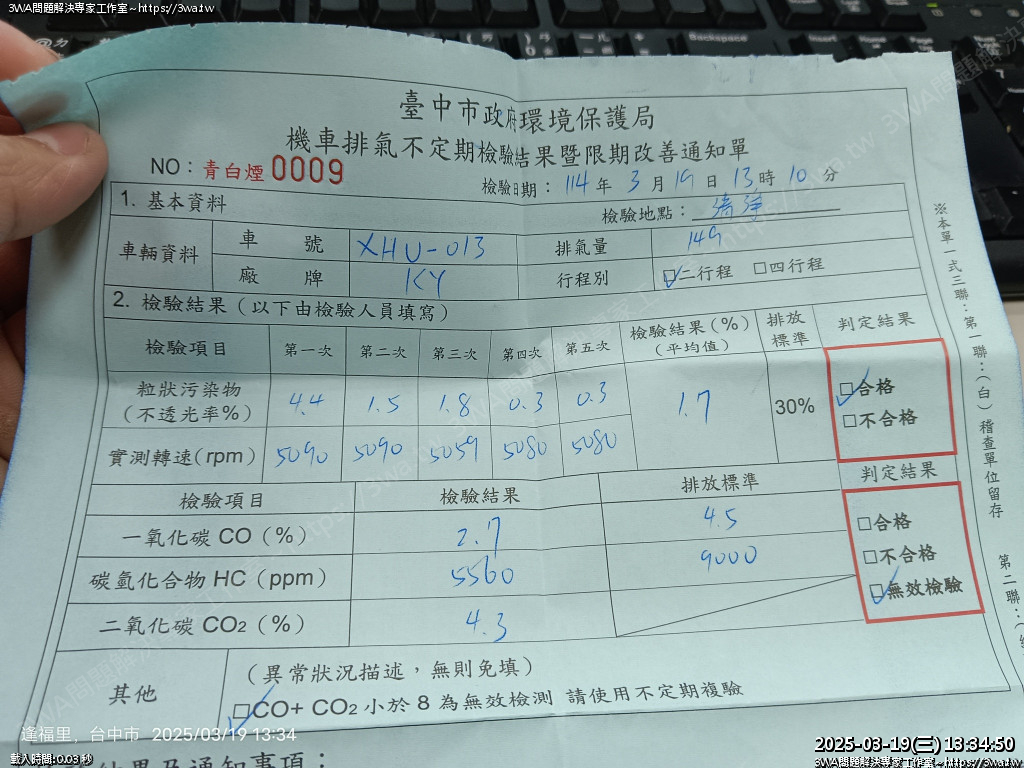 3WA問題解決專家工作室~https://3wa.tw
3WA問題解決專家工作室~https://3wa.tw
Backspace
臺中市政府環境保護局
機車排氣不定期檢驗結果暨限期改善通知單
NO：青白煙 0009
檢驗日期： 114 年 3 月 19 日 13 時 10 分
1. 基本資料
檢驗地點：
車輛資料 車 號 XHU-013 排氣量 149
廠 牌 KY 行程別 □二行程 □四行程
2. 檢驗結果（以下由檢驗人員填寫）
檢驗項目 第一次 第二次 第三次 第四次 第五次 檢驗結果(%)（平均值） 排放標準 判定結果
粒狀污染物（不透光率%） 4.4 1.5 1.8 0.3 0.3 1.7 30% □合格
□不合格
實測轉速(rpm) 5090 5090 5059 5080 5080
檢驗項目 檢驗結果 排放標準 判定結果
一氧化碳 CO（%） 2.7 4.5 □合格
碳氫化合物 HC（ppm） 5560 9000 □不合格
二氧化碳 CO2（%） 4.3 □無效檢驗
其他 （異常狀況描述，無則免填）
□CO+ CO2 小於 8 為無效檢測 請使用不定期複驗
※本單一式三聯：第一聯：（白）稽查單位留存
第二聯：（
結果及通知事項：
逢福里，台中市 2025/03/19 13:34
載入時間: 0.03 秒
2025-03-19(三) 13:34:50
3WA問題解決專家工作室~https://3wa.tw